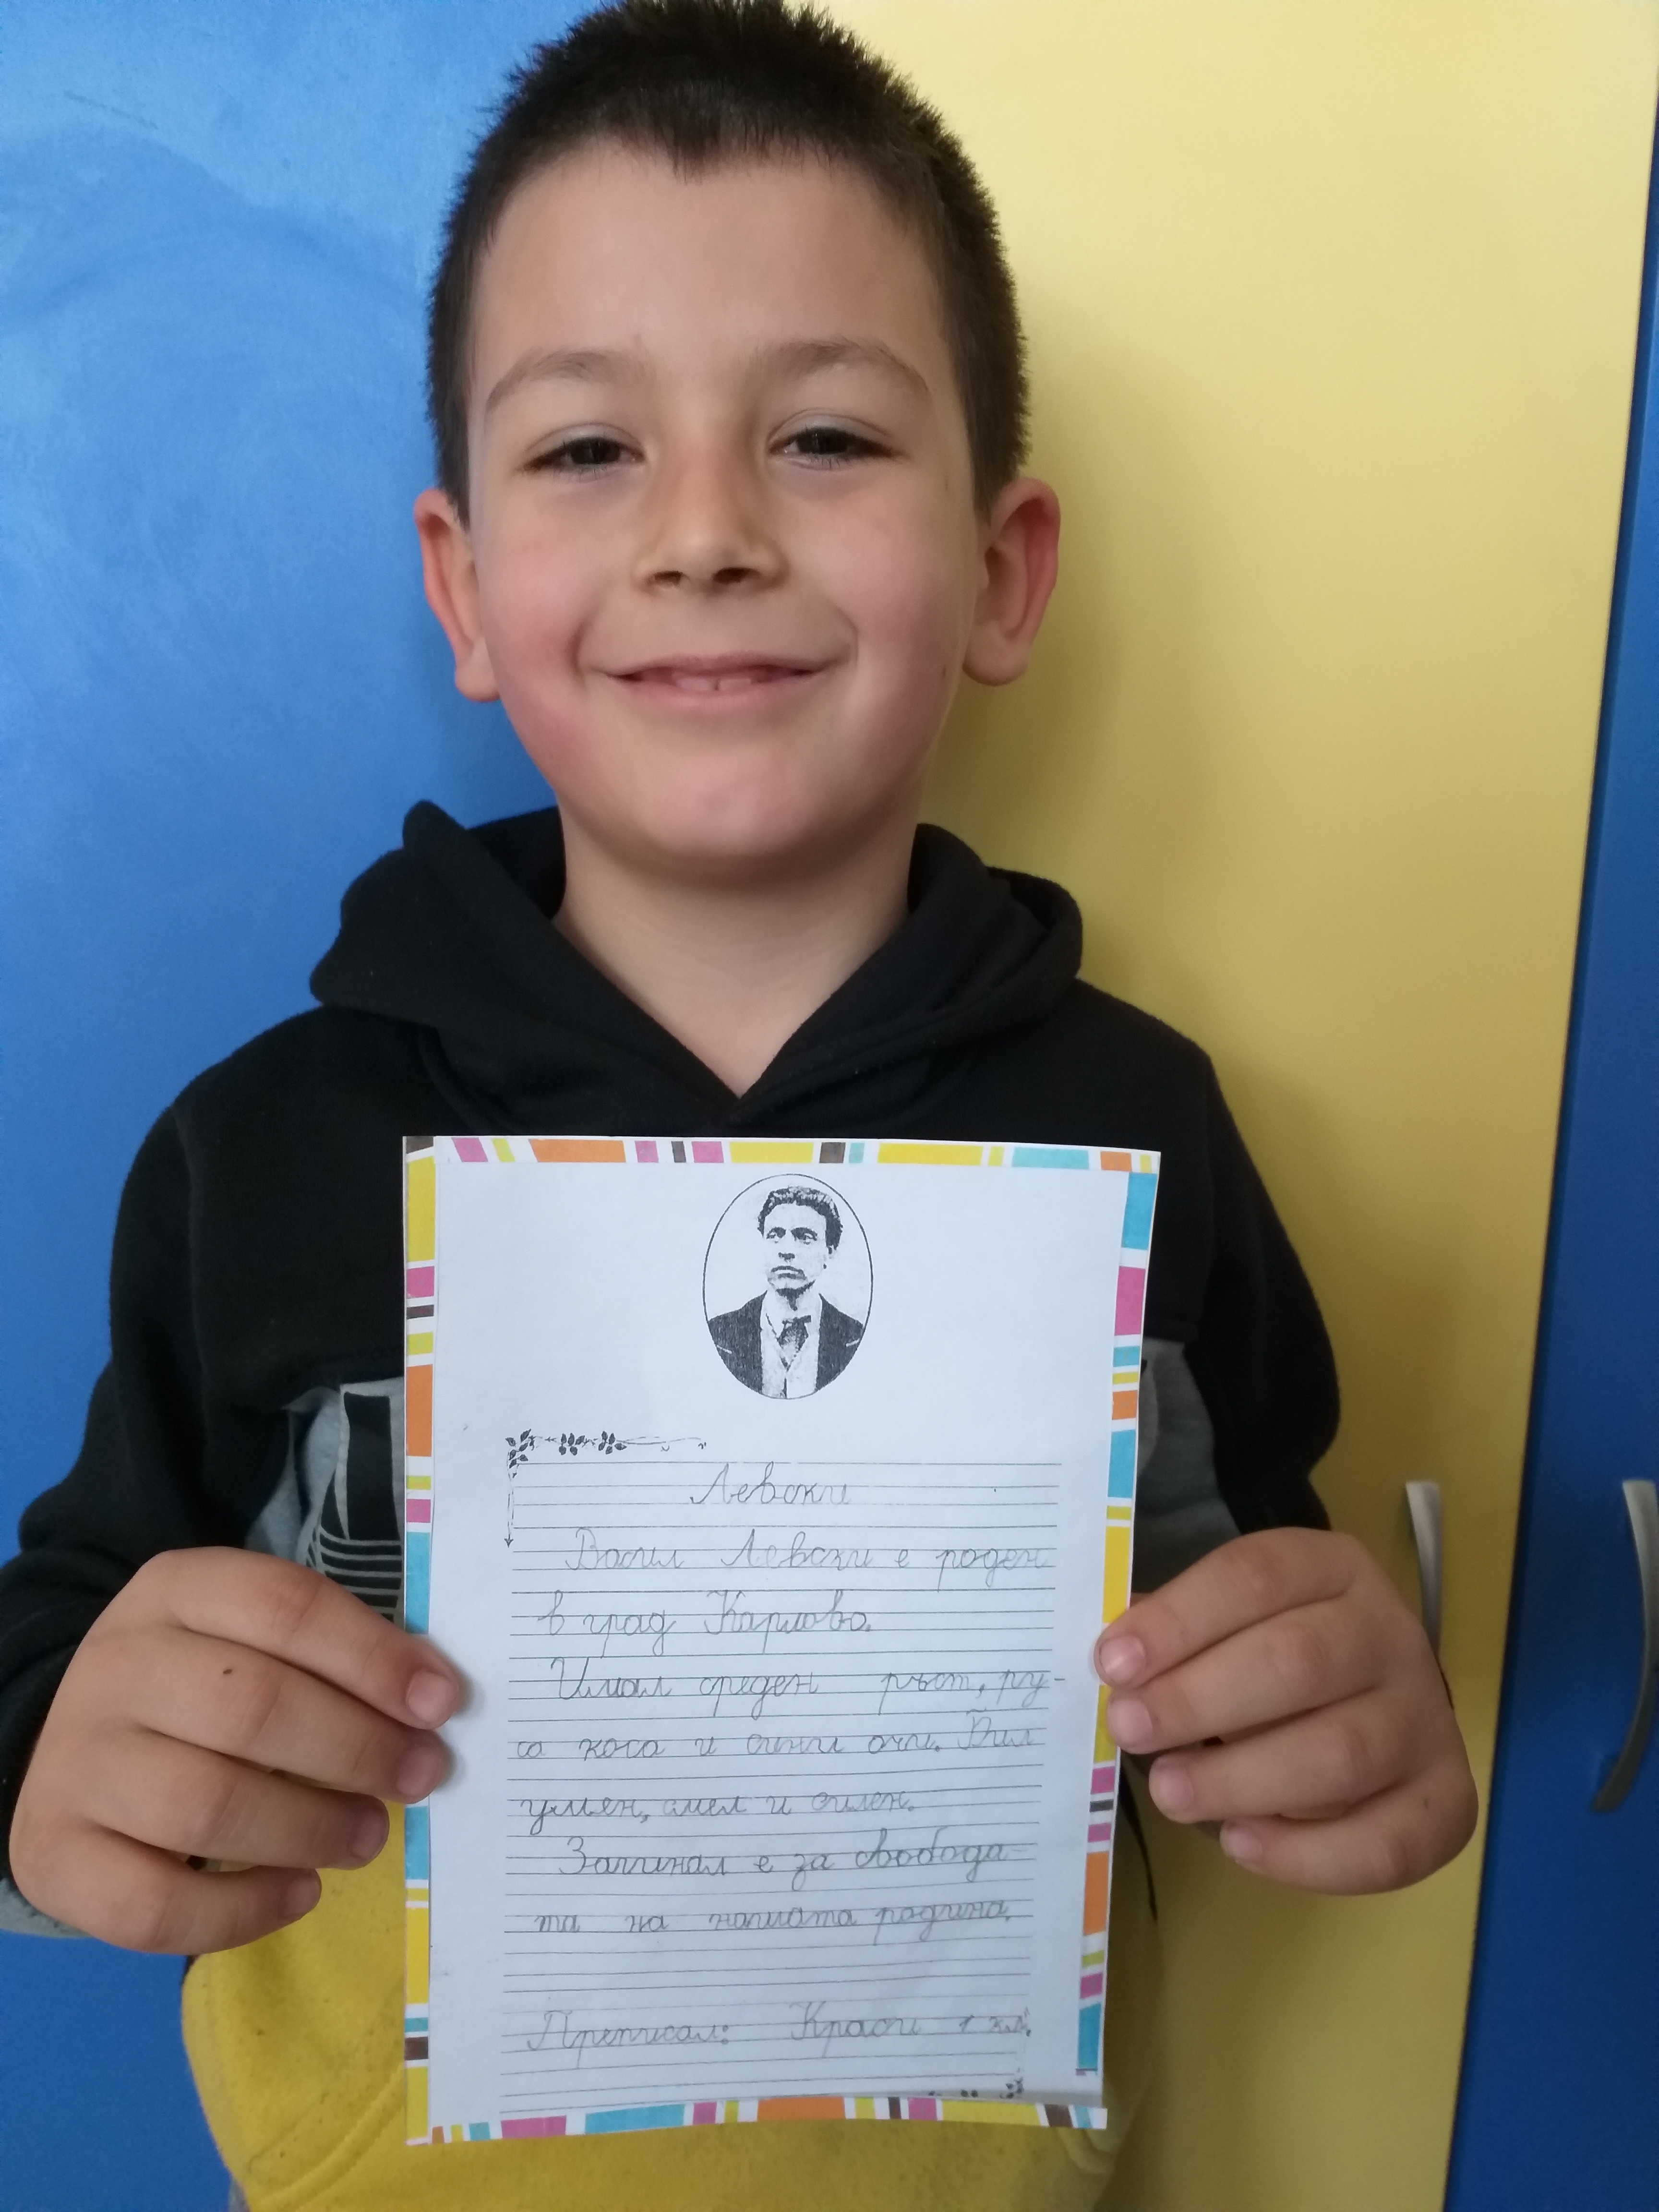 Левски
Васил Левски е роден
в град Карлово.
Имал среден ръст, ру-
са коса и сини очи. Бил
умен, смел и силен.
Загинал е за свобода-
та на нашата родина.
Преписал: Краси 1 кл.